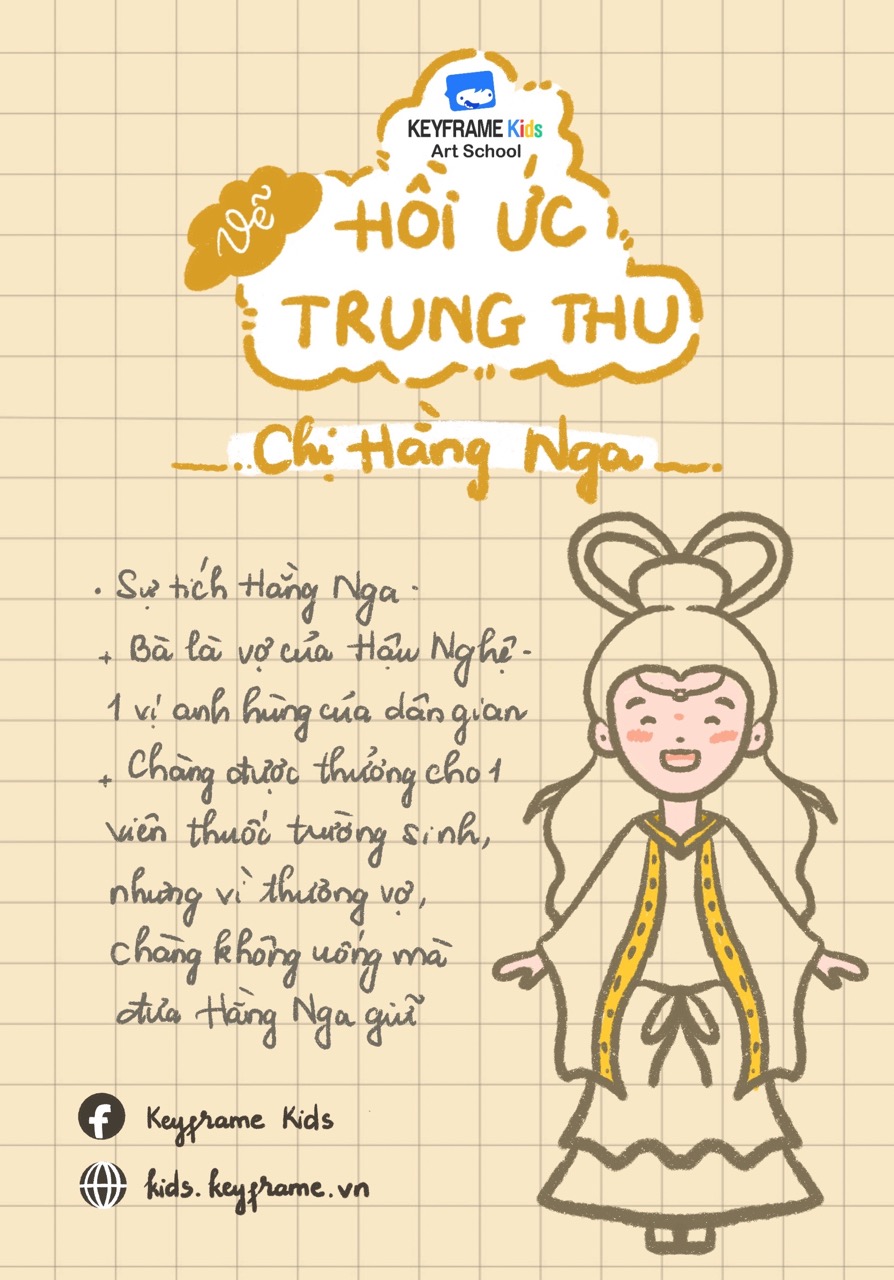 KEYFRAME Kids
Art School
Vẽ
HỒI ỨC
TRUNG THU
Chị Hằng Nga
• Sự tích Hằng Nga
+ Bà là vợ của Hậu Nghệ -
1 vị anh hùng của dân gian
+ Chàng được thưởng cho 1
viên thuốc trường sinh,
nhưng vì thương vợ,
chàng không uống mà
đưa Hằng Nga giữ
f Keyframe Kids
kids.keyframe.vn